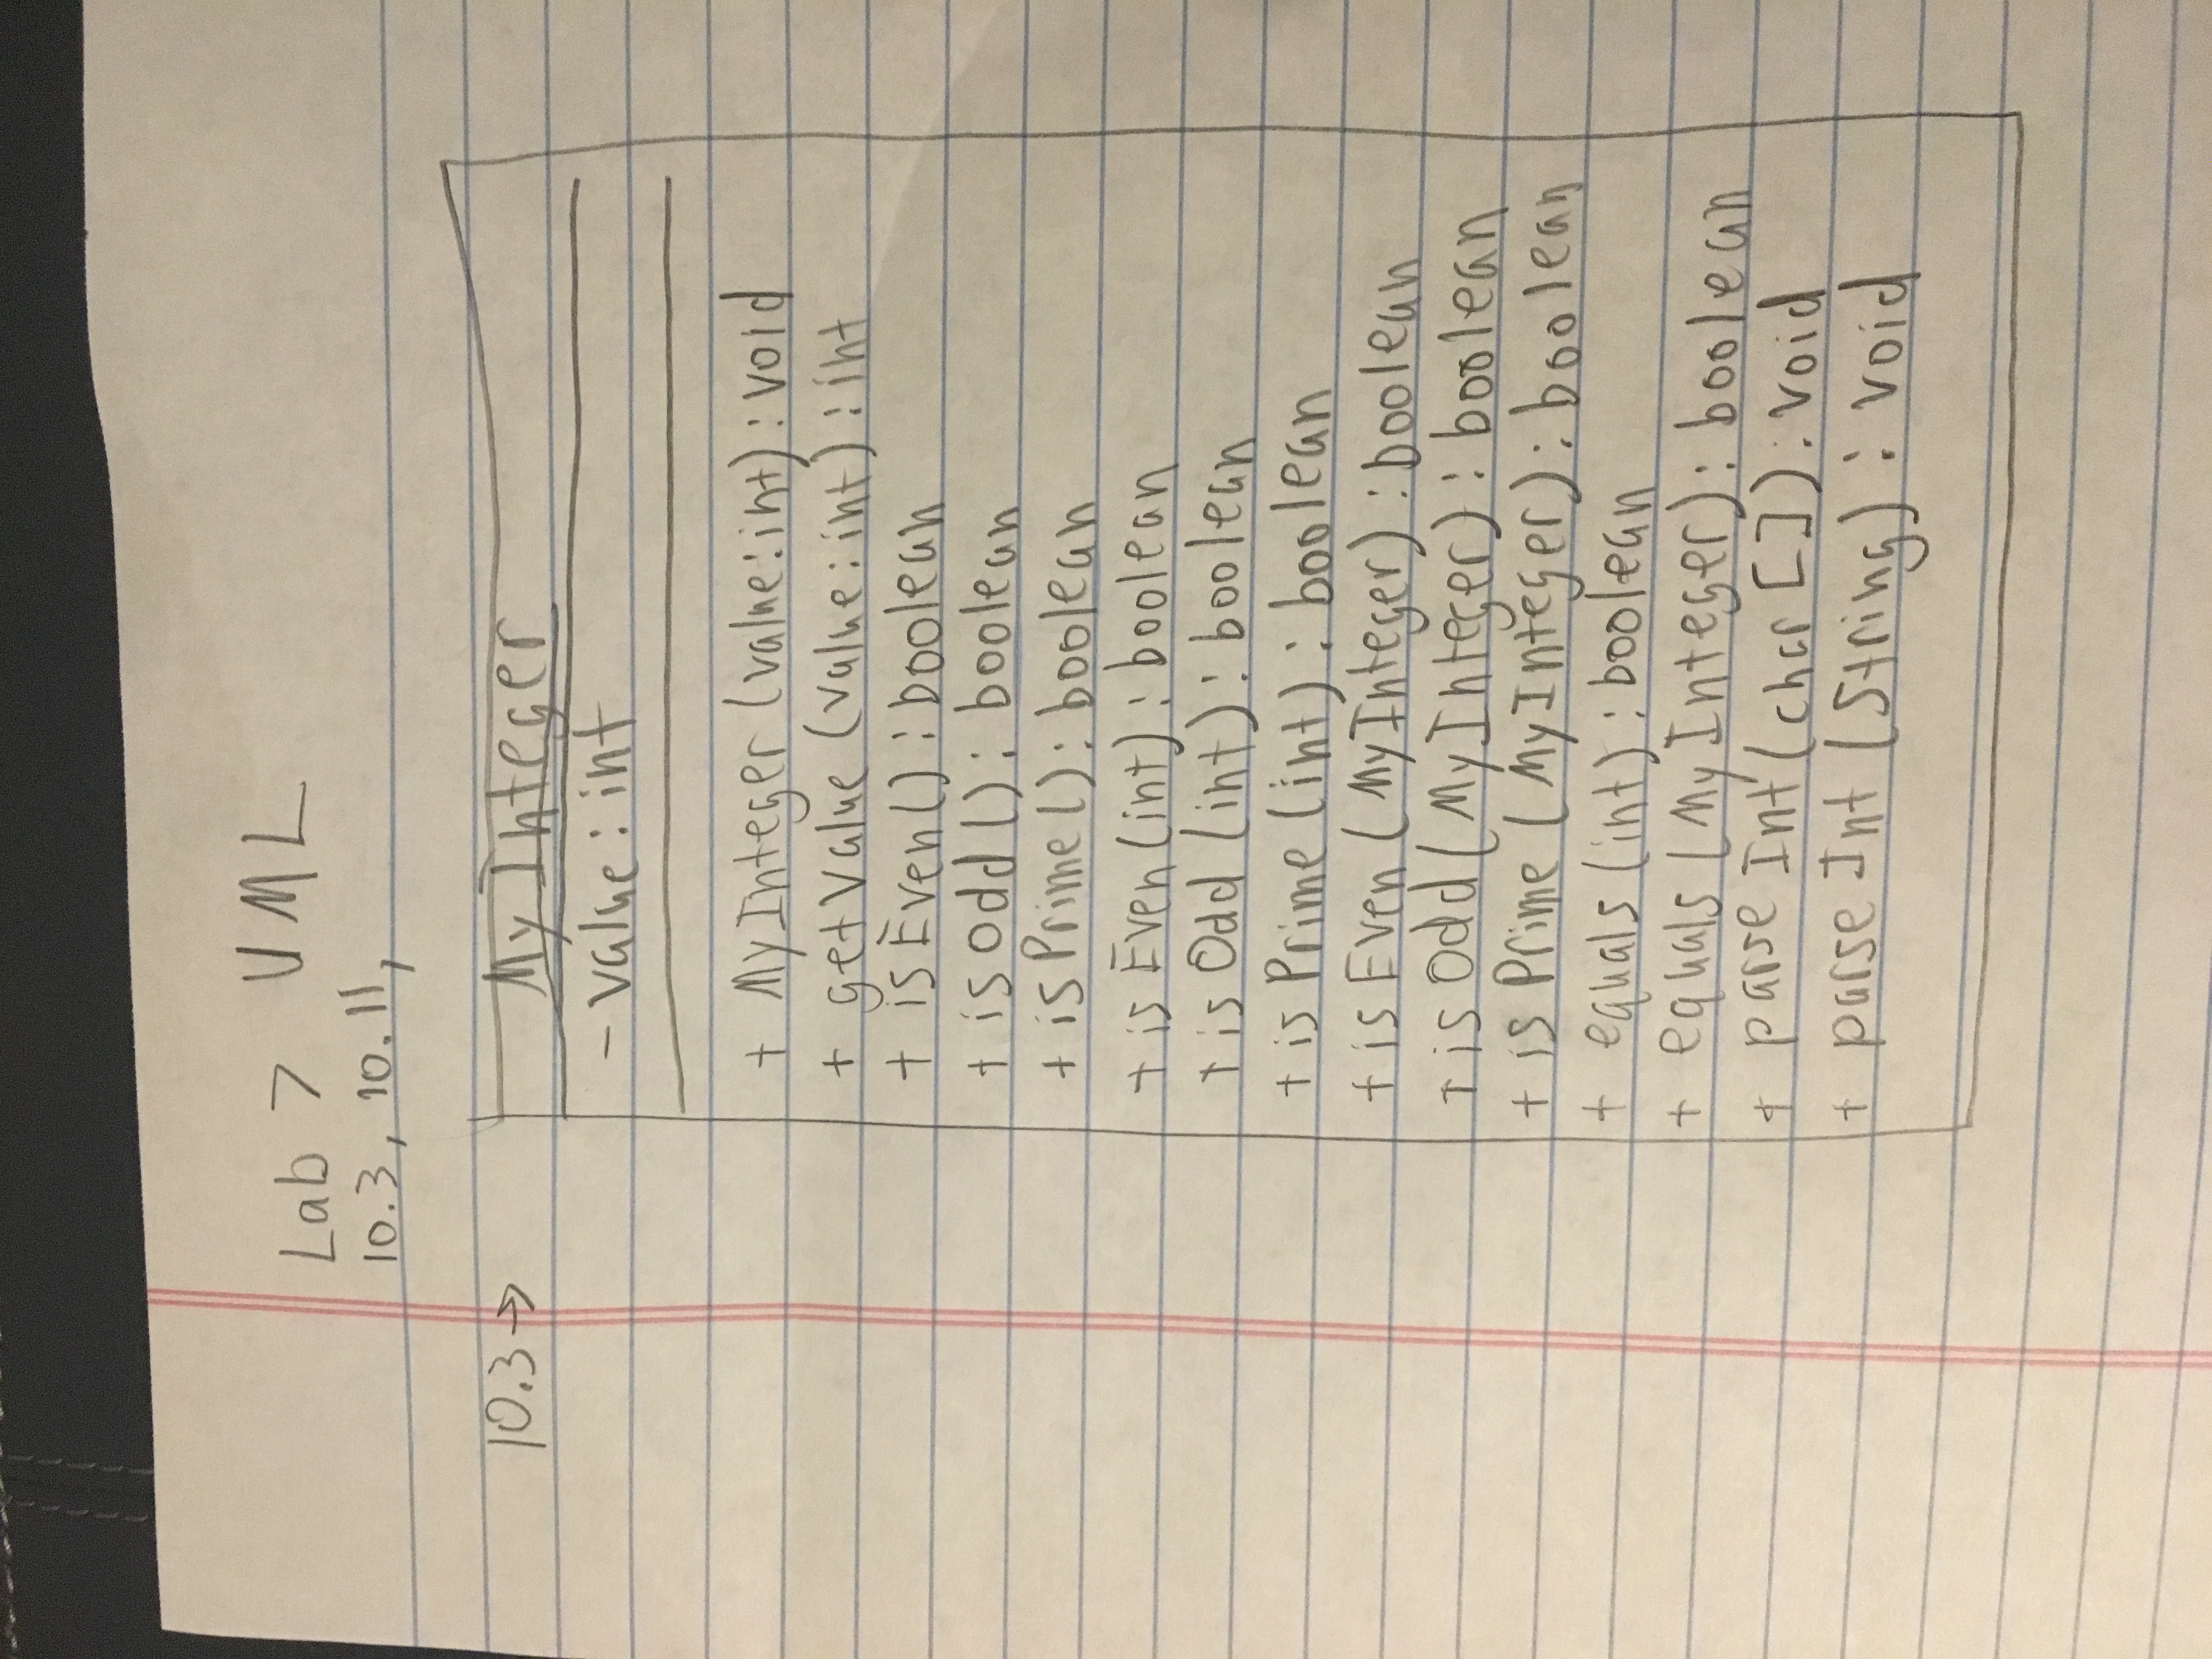 Lab 7 UML
10.3, 10.11,
10.3→
MyInteger
- value: int
+ MyInteger (value: int) : void
+ getValue (value: int) : int
+ isEven() : boolean
+ isOdd() : boolean
+ isPrime() : boolean
+ isEven(int) : boolean
+ isOdd (int) : boolean
+ isPrime (int) : boolean
+ isEven (MyInteger) : boolean
+ isOdd (MyInteger) : boolean
+ isPrime (MyInteger) : boolean
+ equals (int) : boolean
+ equals (MyInteger) : boolean
+ parseInt (char []) : void
+ parseInt (String) : void